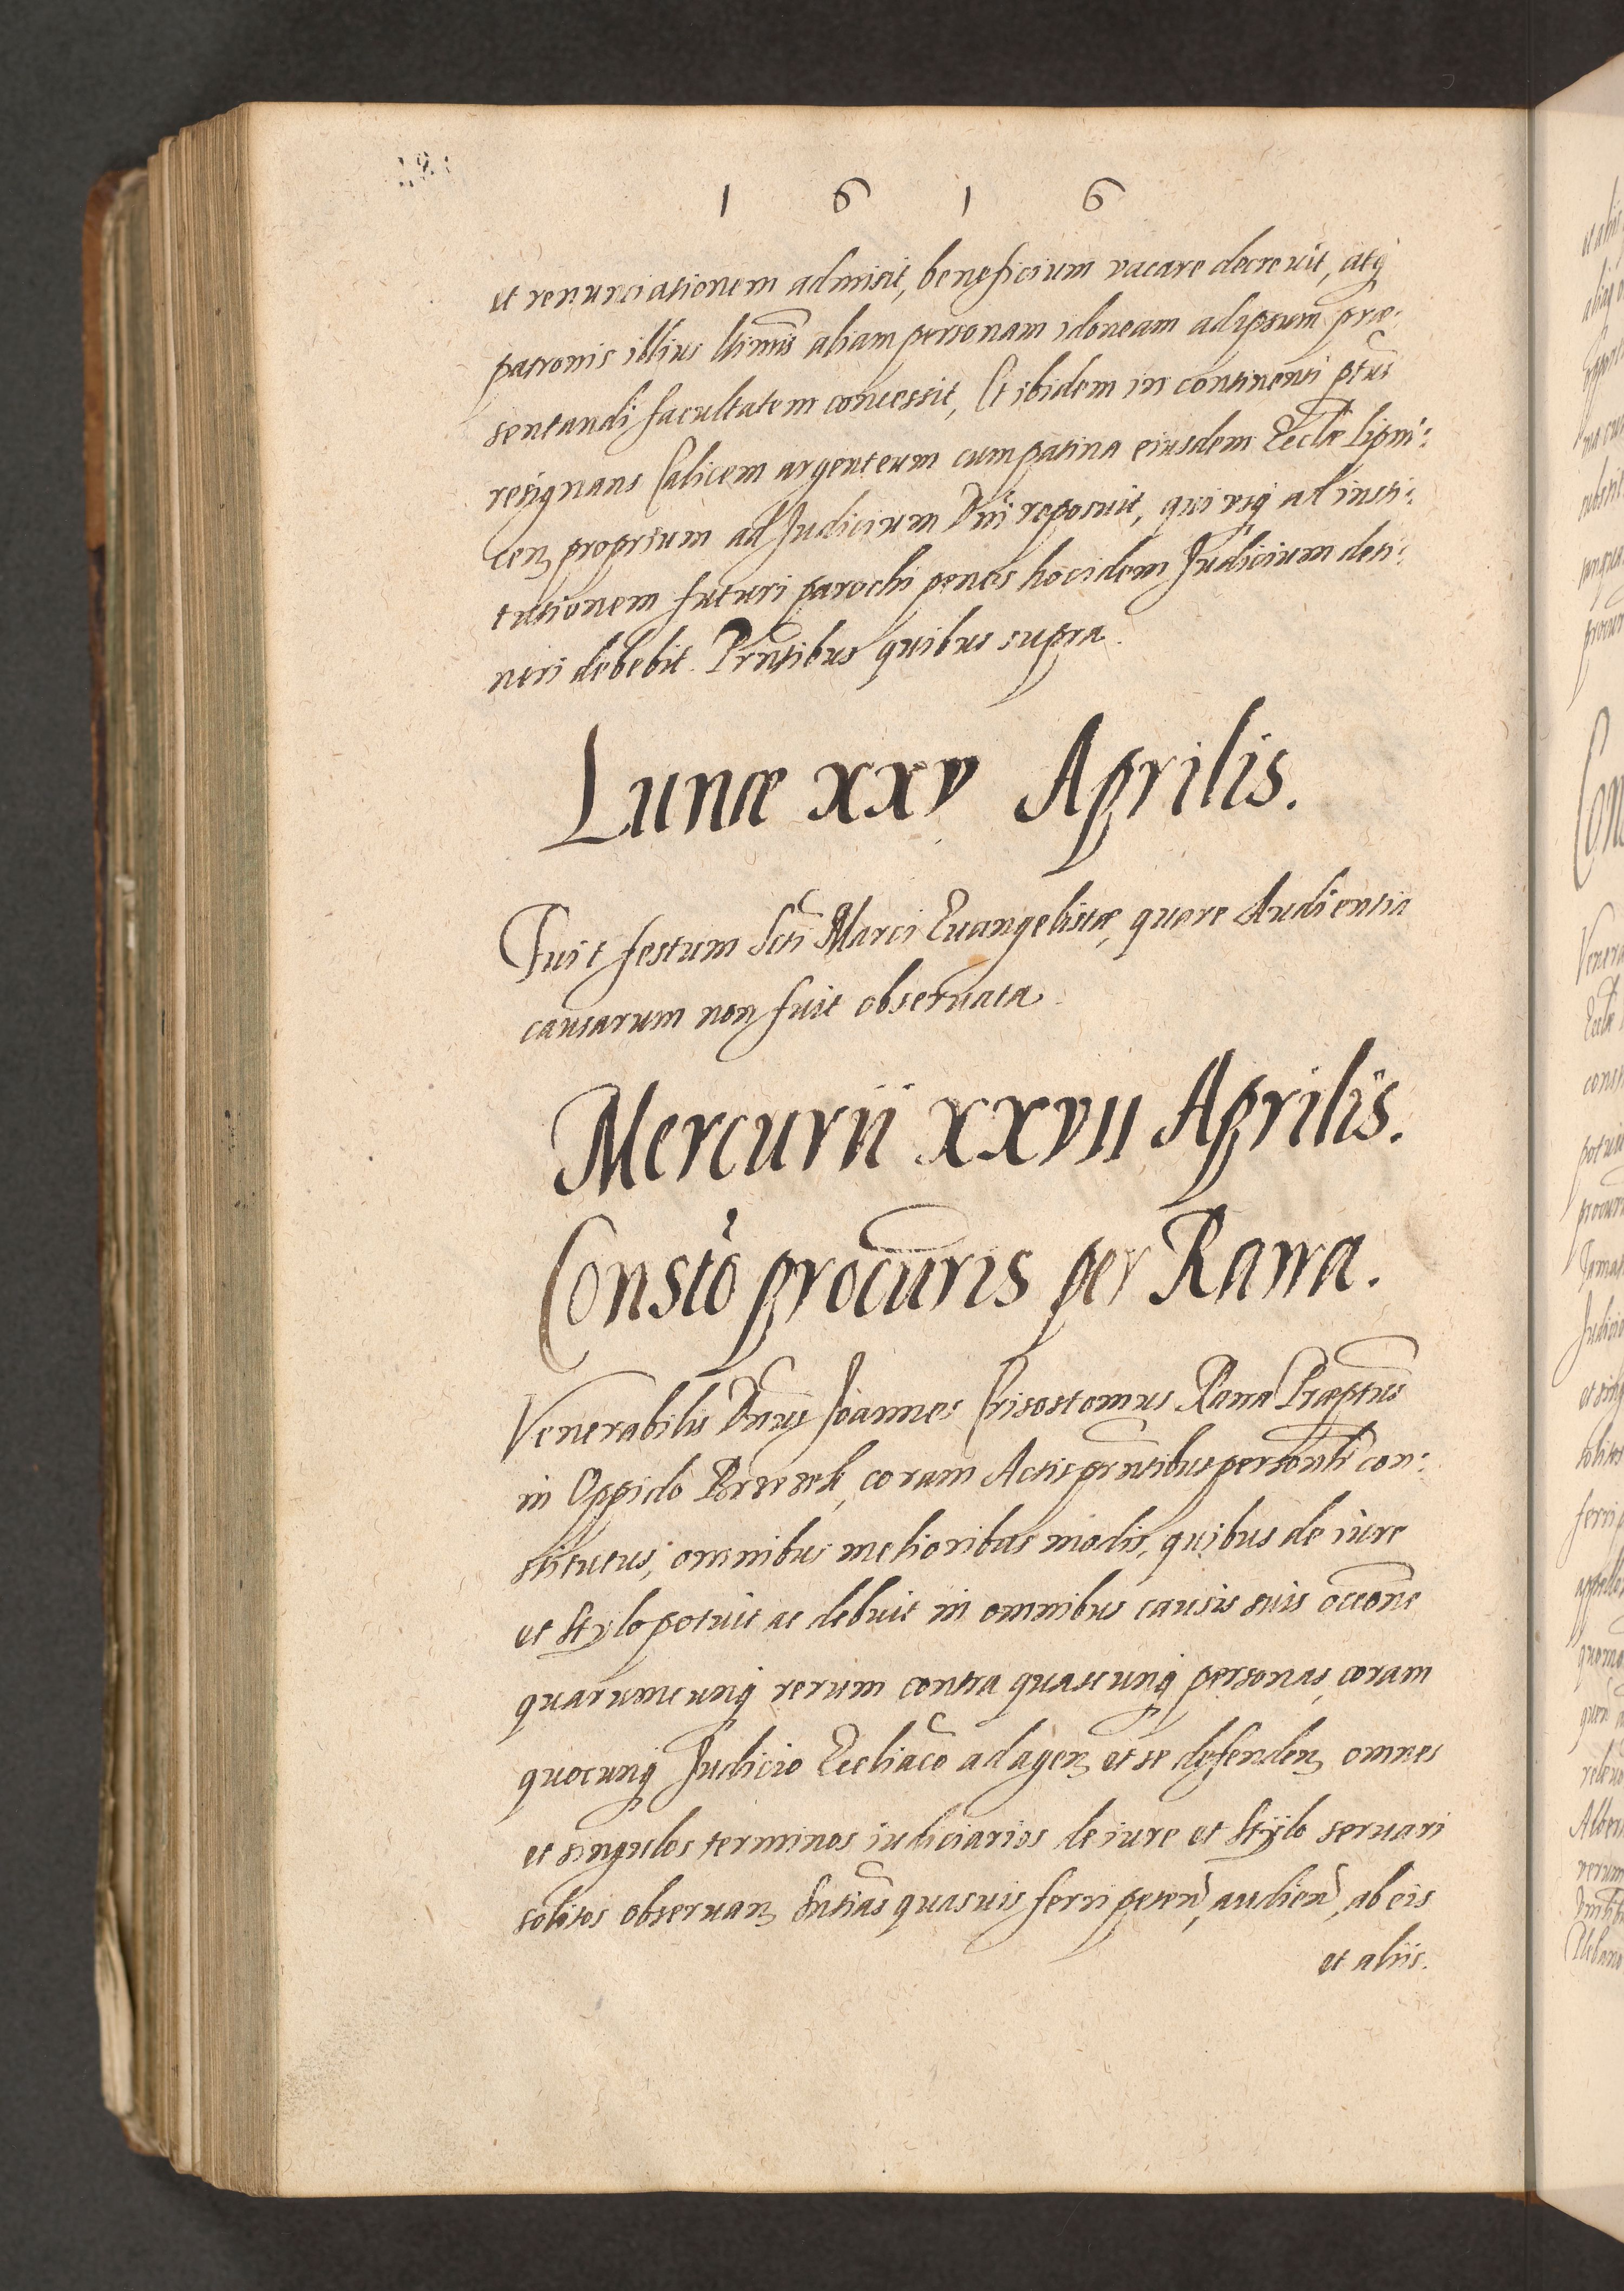 1 6 1 6
et renunciationem admisit, beneficium vacare decrevit, atq
patronis illius ltimis aliam personam idoneam ad ipsum præ:
sentandi facultatem concessit, Et ibidem in continenti ptus
resignans Calicem argenteum cum patina eiusdem Ecclæ Lipni:
cen proprium ad Judicium Dni reposuit, qui usq ad insti:
tutionem futuri parochi penes hoc idem Judicium deti:
neri debebit. Prntibus quibus supra.
Lunæ xxv Aprilis.
Fuit festum Scti Marci Euangelistæ, quare Audientia
causarum non fuit obseruata.
Mercurii xxvii Aprilis.
Consto procuris per Rawa.
Venerabilis Dnus Joannes Crisostomus Rawa Præptus
in Oppido coram Actis prntibus personli con:
stitutus, omnibus melioribus modis, quibus de iure
et stylo potuit ac debuit in omnibus causis suis occone
quarumcunq rerum contra quascunq personas, coram
quocunq Judicio Eccliaco ad agen et se defenden omnes
et singulos terminos iudiciarios de iure et stylo seruari
solitos obseruan Sntias quasuis ferri peten, audien, ab eis
et aliis.